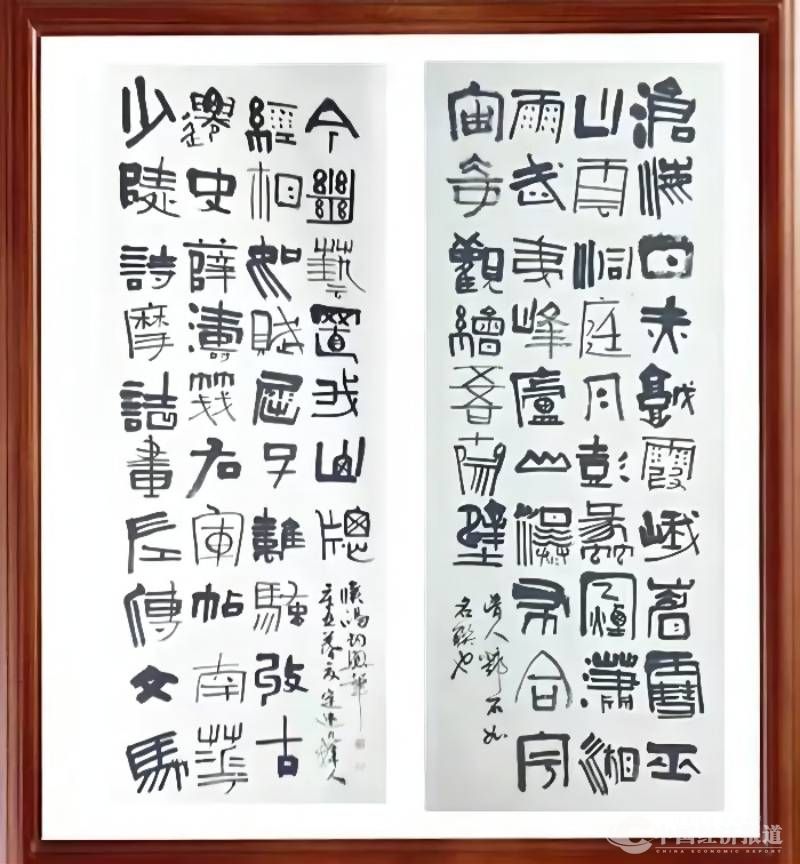 滄海日赤城霞峨嵋雪巫
山雲洞庭月彭蠡煙瀟湘
雨武夷峰廬山瀑布合宇
宙奇觀繪吾齋壁
昔人鄧石如
名聯也
少陵詩摩詰畫左傳文馬
遷史薛濤箋右軍帖南華
經相如賦屈子離騷收古
今絕藝置我山窗
中国经济报道
CHINA ECONOMIC REPORT